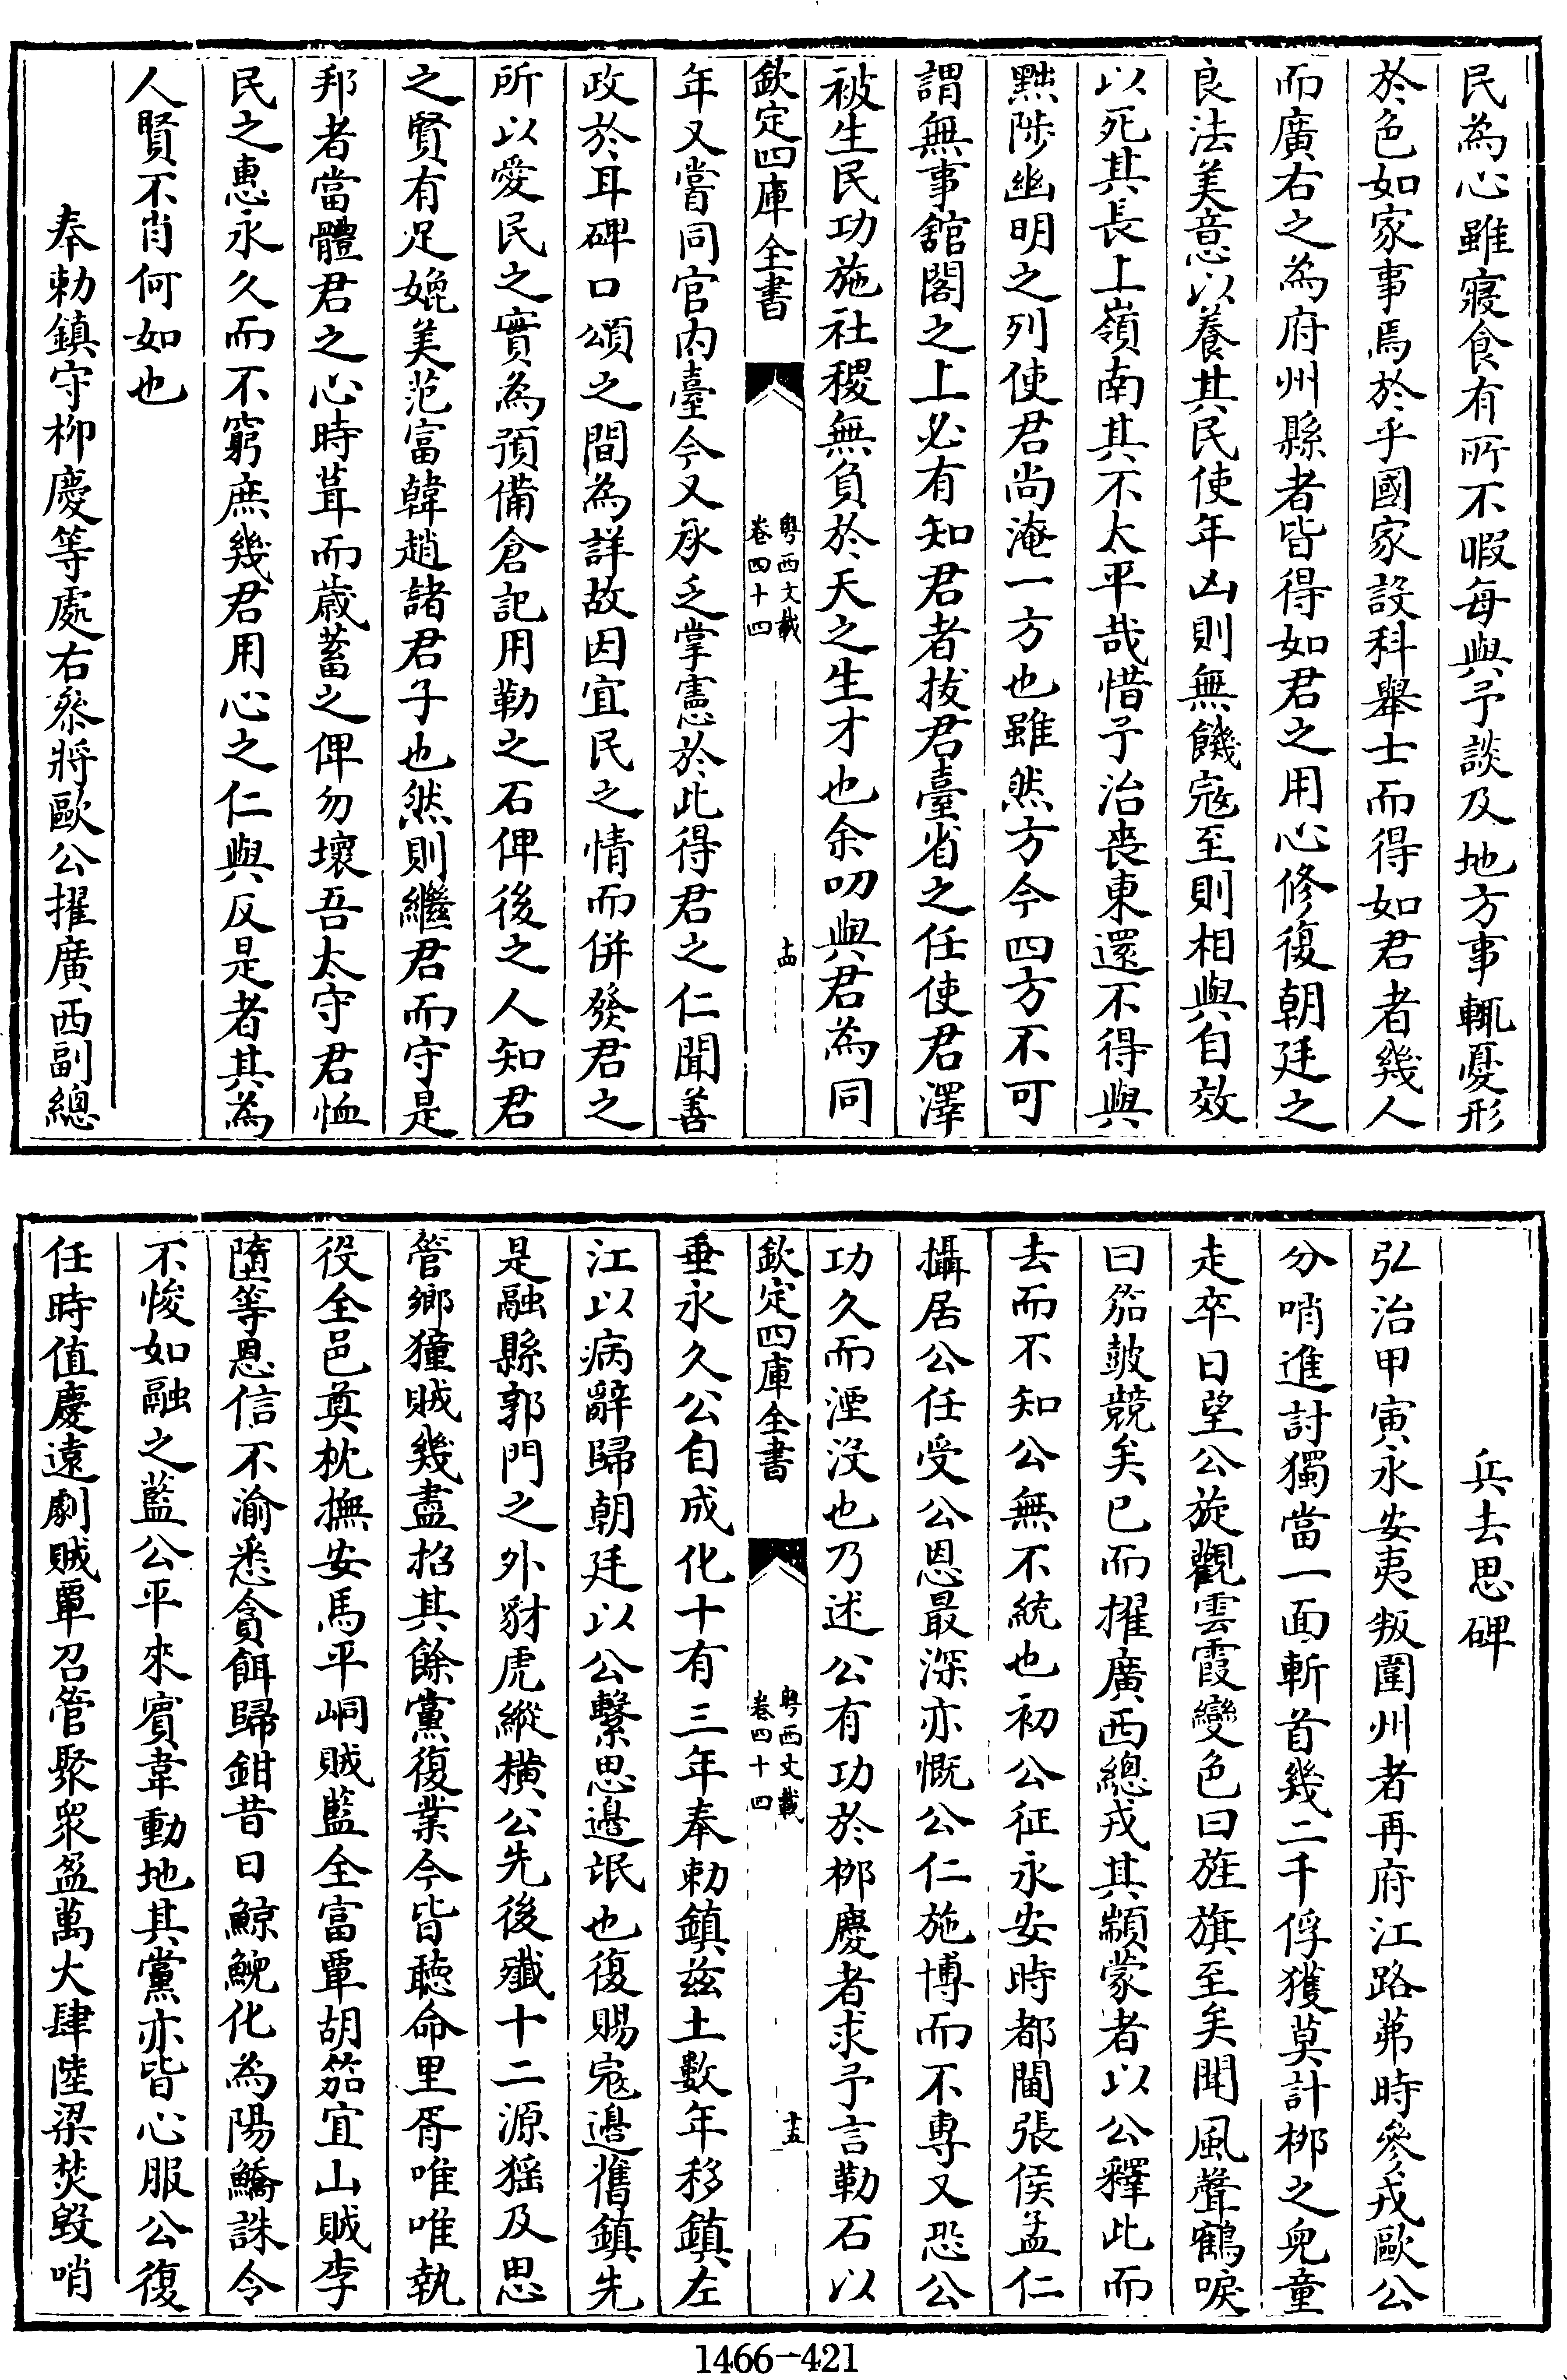 民為心雖寢食有所不暇每與予談及地方事輒憂形
於色如家事焉於乎國家設科舉士而得如君者幾人
而廣右之為府州縣者皆得如君之用心修復朝廷之
良法美意以養其民使年凶則無饑寇至則相與自效
以死其長上嶺南其不太平哉惜予治喪東還不得與
黜陟幽明之列使君尚淹一方也雖然方今四方不可
謂無事舘閣之上必有知君者拔君臺省之任使君澤
被生民功施社稷無負於天之生才也余叨與君為同
欽定四庫全書
粤西文載
卷四十四
十四
年又嘗同官内臺今又承乏掌憲於此得君之仁聞善
政於耳碑口頌之間為詳故因宜民之情而併發君之
所以愛民之實為預備倉記用勒之石俾後之人知君
之賢有足媲美范富韓趙諸君子也然則繼君而守是
邦者當體君之心時葺而歲蓄之俾勿壞吾太守君恤
民之惠永久而不窮庶幾君用心之仁與反是者其為
人賢不肖何如也
奉勅鎮守柳慶等處右叅將歐公擢廣西副總
兵去思碑
弘治甲寅永安夷叛圍州者再府江路茀時參戎歐公
分哨進討獨當一面斬首幾二千俘獲莫計桞之兒童
走卒日望公旋觀雲霞變色曰旌旗至矣聞風聲鶴唳
曰笳皷競矣已而擢廣西總戎其顓蒙者以公釋此而
去而不知公無不統也初公征永安時都閫張侯孟仁
攝居公任受公恩最深亦慨公仁施博而不專又恐公
功久而湮沒也乃述公有功於桞慶者求予言勒石以
欽定四庫全書
粤西文載
卷四十四
十五
垂永久公自成化十有三年奉勅鎮兹土數年移鎮左
江以病辭歸朝廷以公繫思邊氓也復賜寇邊舊鎮先
是融縣郭門之外豺虎縱横公先後殲十二源猺及思
管鄉獞賊幾盡招其餘黨復業今皆聽命里胥唯唯執
役全邑奠枕撫安馬平峒賊藍全富覃胡笳宜山賊李
墮等恩信不渝悉貪餌歸鉗昔日鯨鯢化為陽鱎誅令
不悛如融之藍公平來賓韋動地其黨亦皆心服公復
任時值慶遠劇賊覃召管聚衆盈萬大肆陸梁焚毁哨
1466—421